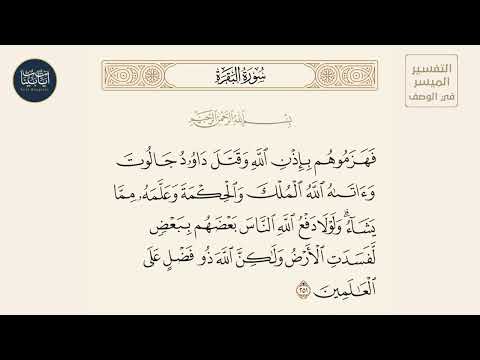 آيات بينات
التفسير
الميسر
في الوصف
سُورَةُ البَقَرَةِ
بِسْمِ اللَّهِ الرَّحْمَٰنِ الرَّحِيمِ
فَهَزَمُوهُم بِإِذْنِ ٱللَّهِ وَقَتَلَ دَاوُۥدُ جَالُوتَ
وَءَاتَىٰهُ ٱللَّهُ ٱلْمُلْكَ وَٱلْحِكْمَةَ وَعَلَّمَهُۥ مِمَّا
يَشَآءُۗ وَلَوْلَا دَفْعُ ٱللَّهِ ٱلنَّاسَ بَعْضَهُم بِبَعْضٍ
لَّفَسَدَتِ ٱلْأَرْضُ وَلَٰكِنَّ ٱللَّهَ ذُو فَضْلٍ عَلَى
ٱلْعَٰلَمِينَ ٢٥١